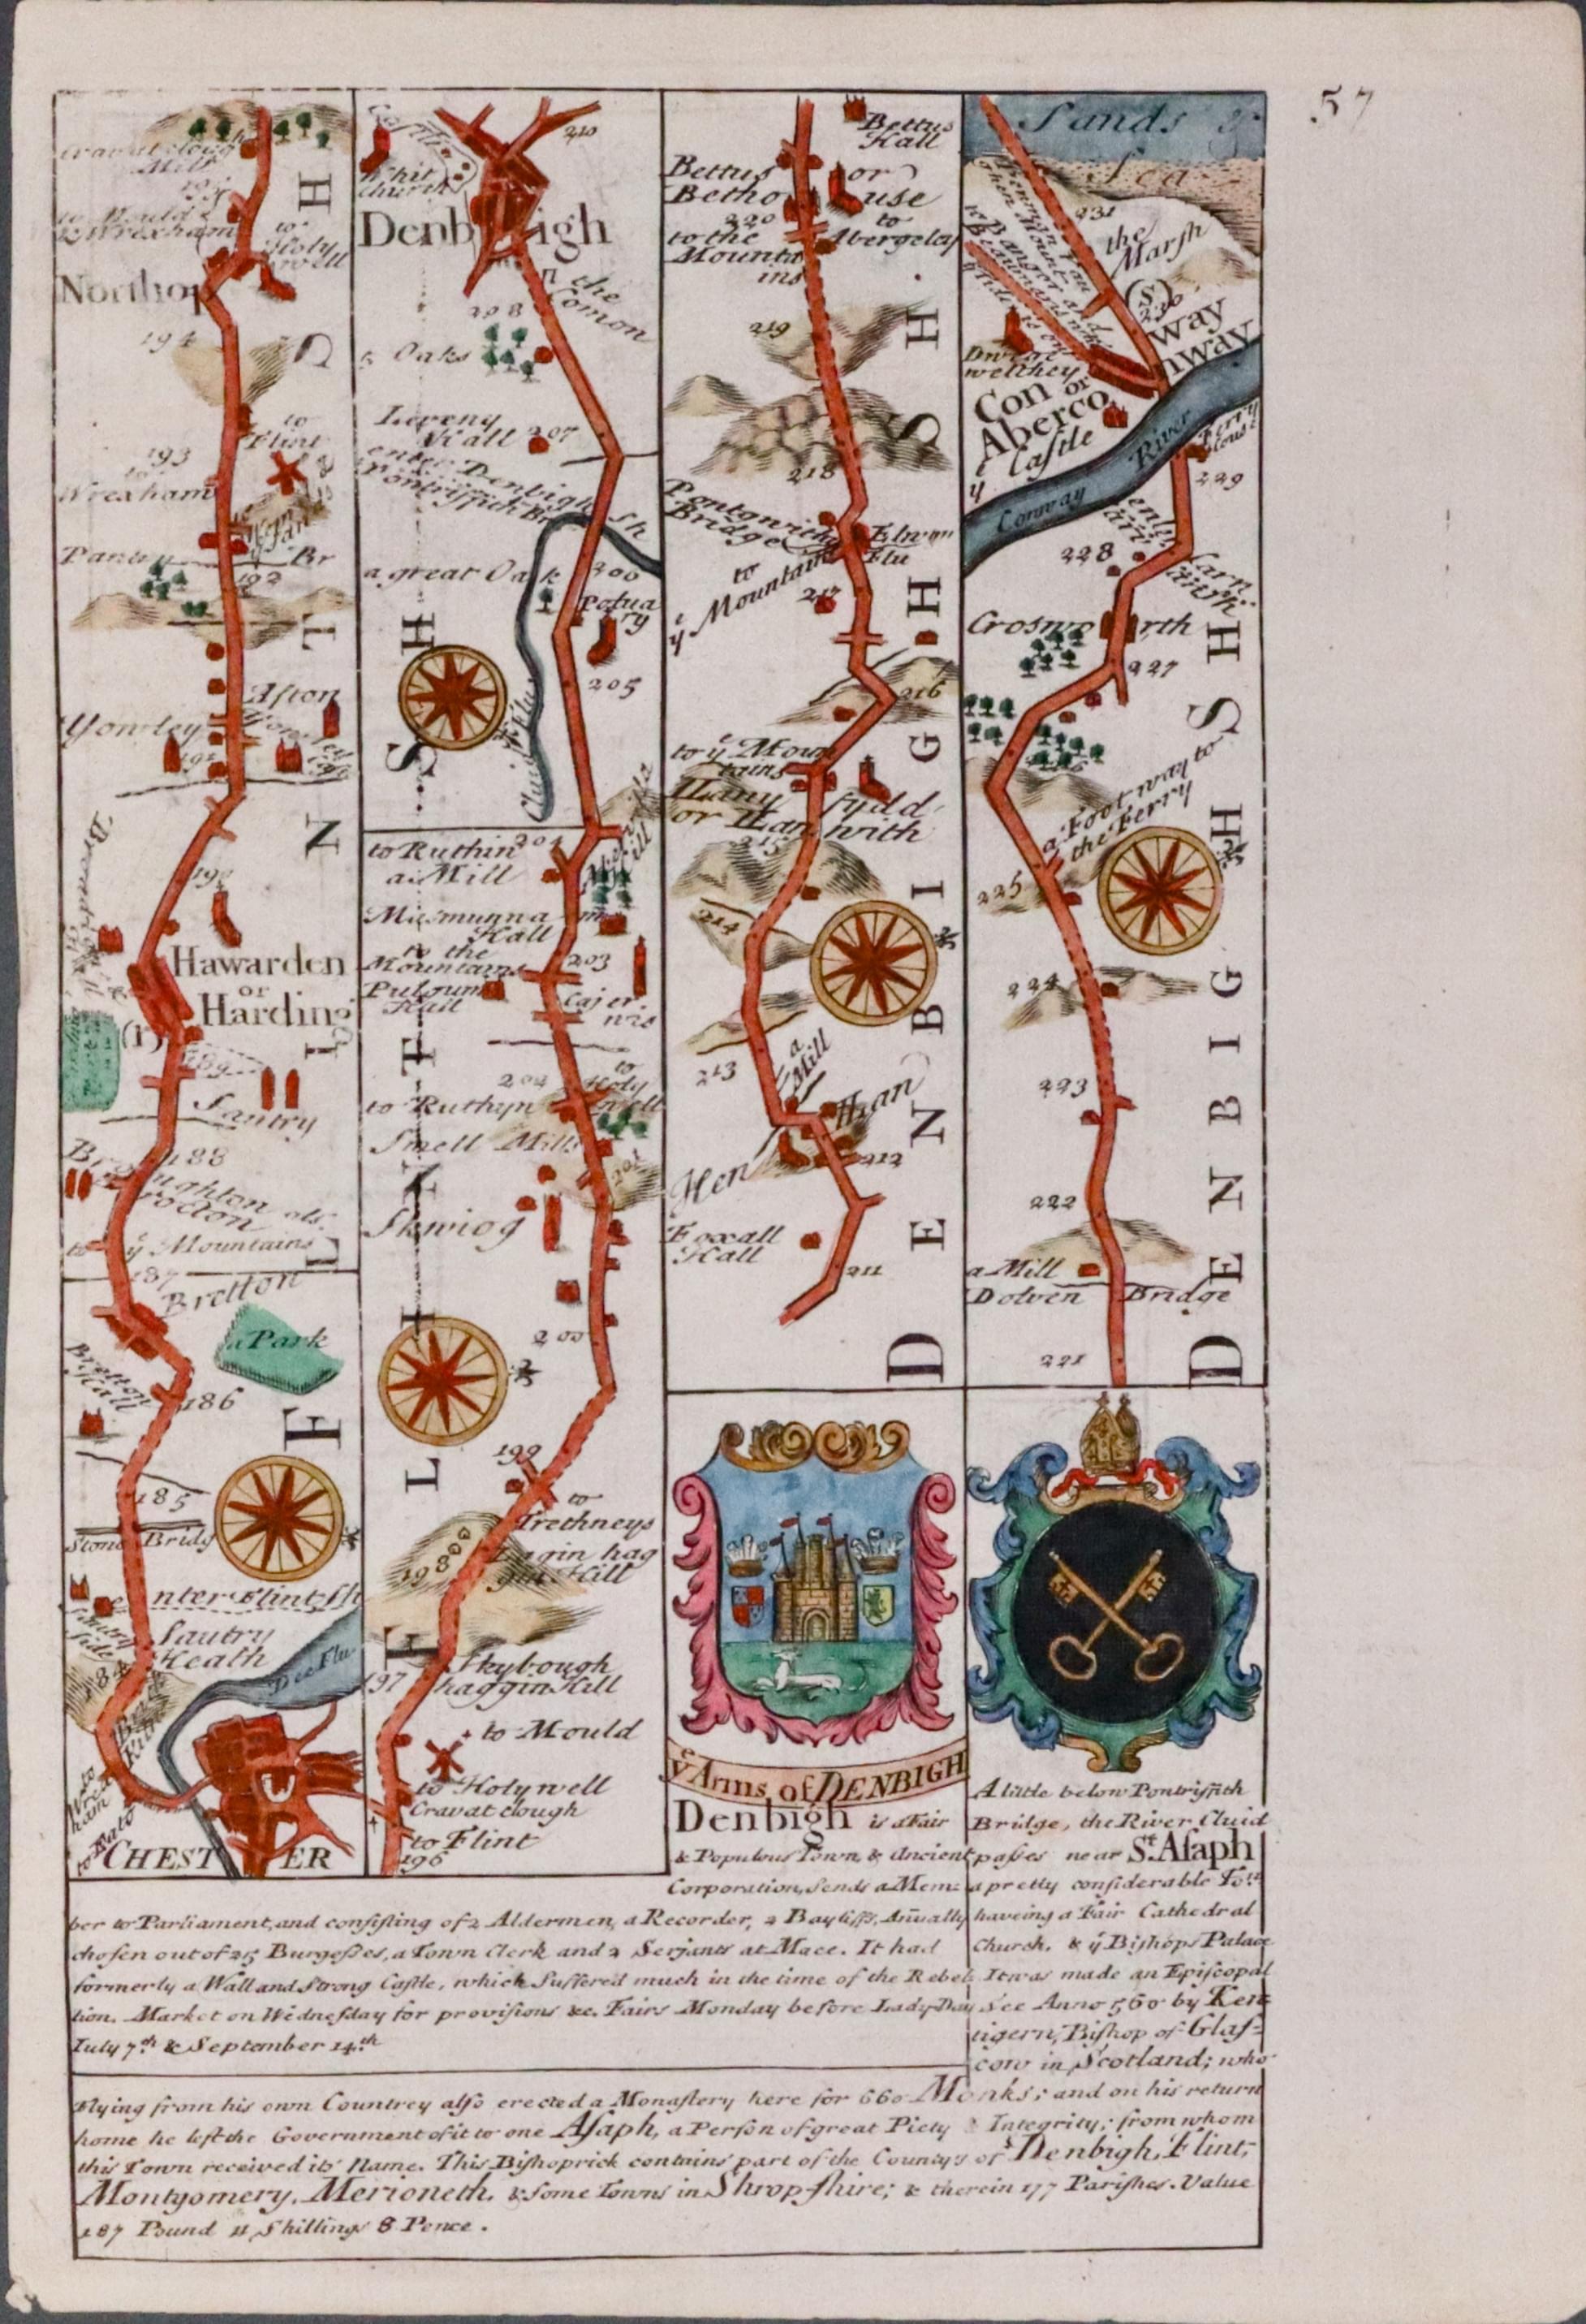 57
Northop
194
193
to
Wrexham
to
Flint
Br
192
Aston
Yowley
190
Hawarden
or
Harding
(1)
Santry
188
to ẏ Mountains
187
Bretton
a Park
Bretton
Hall
186
185
Stone Bridg
enter Flintsh
Sautry
Heath
Dee Flu
184
CHESTER
FLINT SH
210
Whit
church
Denbigh
on the
Comon
208
5 Oaks
Leveny
Hall 207
enter Denbigh Sh
Pontriffith Br
a great Oak
206
205
Cluid Flu
204
to Ruthin
a Mill
Mismunna
Hall
to the
Mountains
203
Hall
202
to
Holy
well
to Ruthyn
Smell Mills
201
Skiviog
200
199
to
Trethneys
198
197
Skybough
haggin Hill
to Mould
to Holywell
Cravat clough
to Flint
196
FLINT SH
Bettus
Hall
Bettus or
Bethouse
220
to
Abergeley
to the
Mountains
219
218
Bridge
Elwy
Flu
to
ẏ Mountain
217
216
to ẏ Moun
tains
Llany fydd
or Llan with
215
214
213
a
Mill
Henllan
212
Foxall
Hall
211
DENBIGH SH
Sands &
Sea
231
the
Marsh
(S)
230
Conway
or
Aberconway
ẏ Castle
River
Conway
Ferry
House
229
228
Crosworth
227
a Foot way to
the Ferry
225
224
223
222
a Mill
Dolven Bridge
221
DENBIGH SH
ẏ Arms of DENBIGH
Denbigh is a Fair
& Populous Town, & Ancient
Corporation, Sends a Mem=
ber to Parliament, and consisting of 2 Aldermen, a Recorder, 2 Bayliffs, Anually
chosen out of 25 Burgesses, a Town Clerk and 2 Serjants at Mace. It had
formerly a Wall and Strong Castle, which Suffered much in the time of the Rebel
lion. Market on Wednesday for provisions &c. Fairs Monday before Lady Day
July 7th & September 14th
A little below Pontriffith
Bridge, the River Cluid
passes near St. Asaph
a pretty considerable Town
haveing a Fair Cathedral
Church, & ẏ Bishops Palace
It was made an Episcopal
See Anno 560 by Ken
tigern, Bishop of Glas=
cow in Scotland; who
Flying from his own Countrey also erected a Monastery here for 660 Monks; and on his return
home he left the Government of it to one Asaph, a Person of great Piety & Integrity; from whom
this Town received its Name. This Bishoprick contains part of the Countys of Denbigh, Flint,
Montgomery, Merioneth, & some Towns in Shropshire; & therein 177 Parishes. Value
187 Pound 11 Shillings 8 Pence.